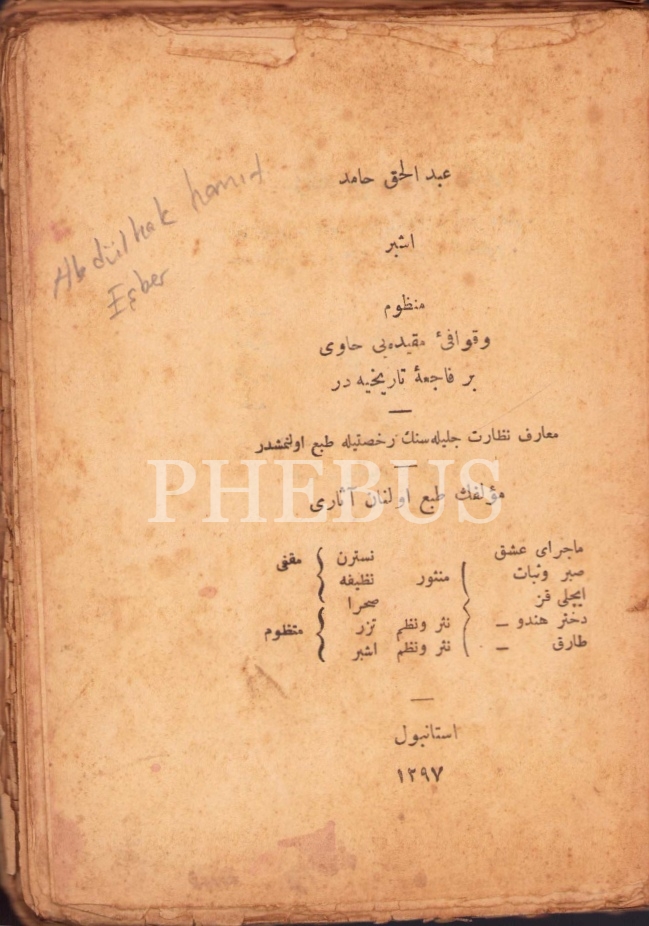 عبد الحق حامد
Abdülhak hamit
Eşber
اشبر
منظوم
وقوافئ مقیده‌یی حاوی
بر فاجعهٔ تاریخیه در
معارف نظارت جلیله‌سنك رخصتیله طبع اولنمشدر
PHEBUS
مؤلفك طبع اولنان آثاری
ماجرای عشق
صبر وثبات
ایچلی قز
دختر هندو –
طارق –
منثور
نثر ونظم
نثر ونظم
نسترن
نظیفه
صحرا
تزر
اشبر
مقفی
منظوم
استانبول
١٢٩٧